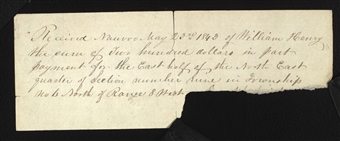 Received Nauvoo May 23rd 1843 of William Henry
the sum of Two hundred dollars in part
payment for the East half of the North East
quarter of Section number Nine in Township
North of Range 8 West